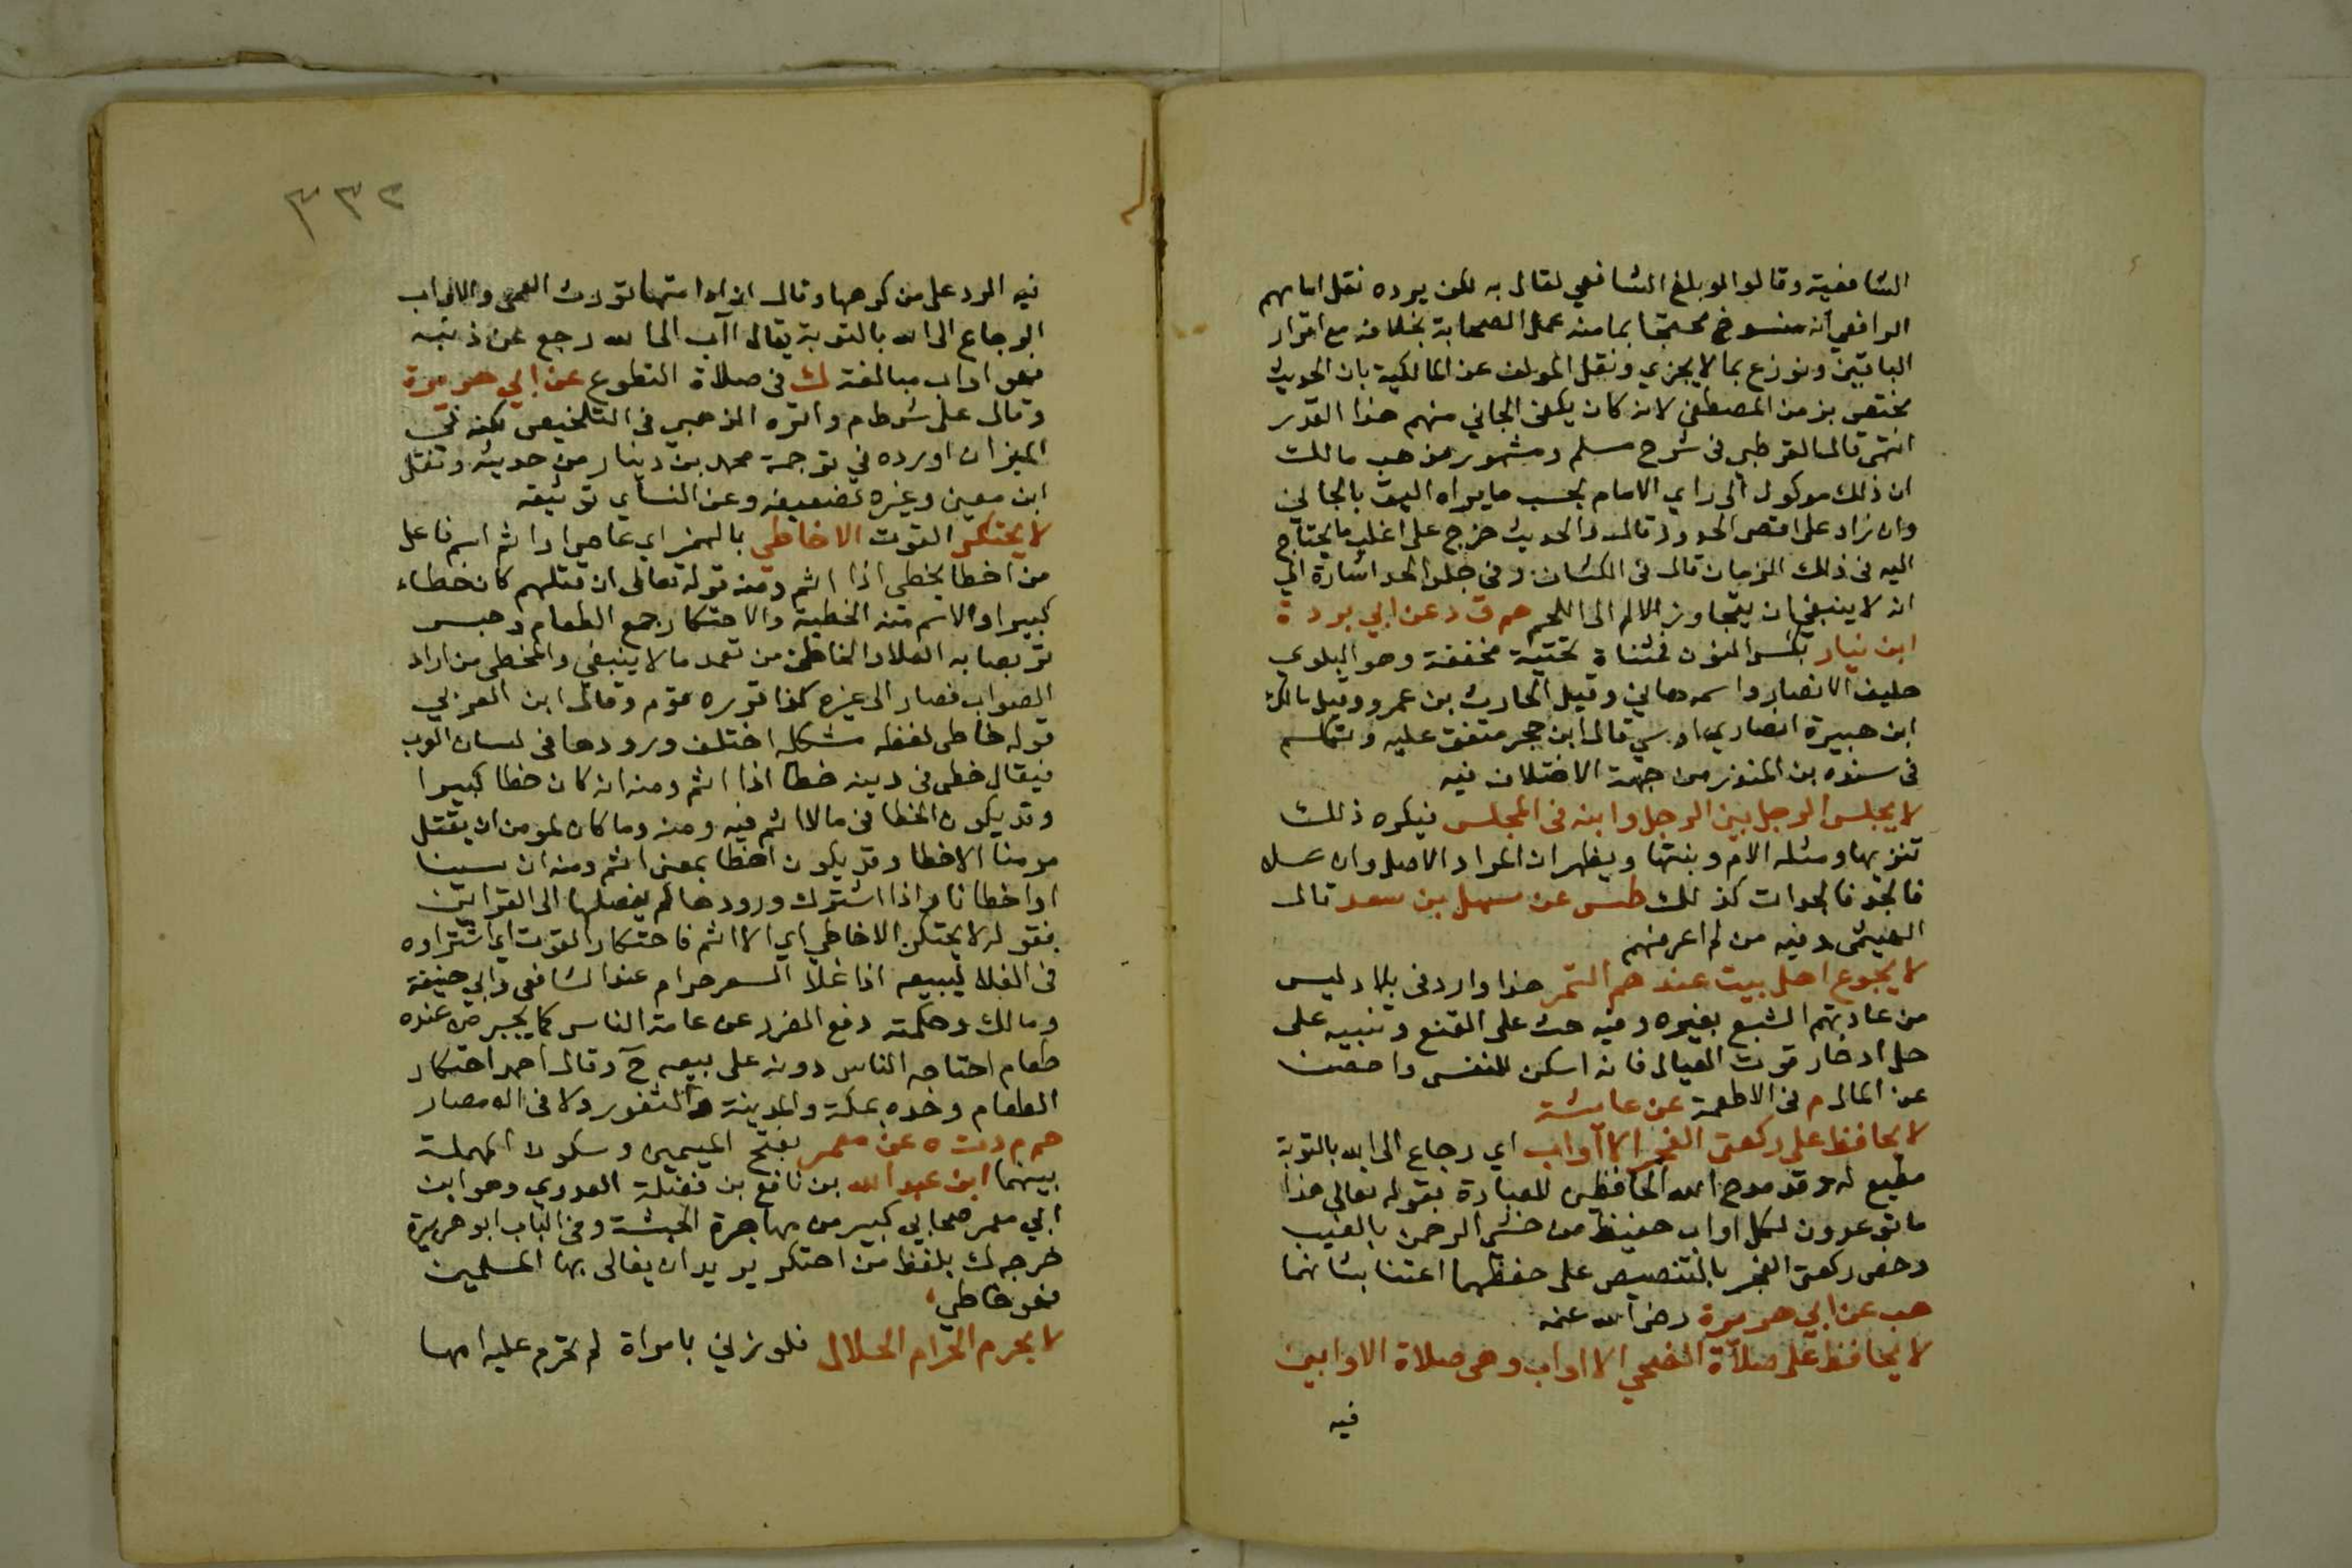 الشافعية وقالوا لو بلغ الشافعي لقال به لكن يرده نقل امامهم
الرافعي أنه منسوخ محتجا بما منه عمل الصحابة بخلافه مع اقرار
الباقين ونوزع بما لا يجزي ونقل المولف عن المالكية بان الحديث
مختص بزمن المصطفى لانه كان يكفى الجاني منهم هذا القدر
انتهى قال القرطبي فى شرح مسلم ومشهور مذهب مالك
ان ذلك موكول الى راي الامام بحسب ما يراه اليق بالجاني
وان زاد على اقصى الحدود قال والحديث خرج على اغلب ما يحتاج
اليه فى ذلك الزمان قال فى الكشاف وفى جلد الحد اشارة الى
انه لا ينبغي ان يتجاوز الالم الى اللحم حم ق د عن ابي بردة
ابن نيار بكسر النون فمثناة تحتية مخففة وهو البلوي
حليف الانصار واسمه هاني وقيل الحارث بن عمرو وقيل مالك
ابن هبيرة انصاري اوسي قال ابن حجر متفق عليه وتكلم
فى سنده بن المنذر من جهة الاختلاف فيه
لا يجلس الرجل بين الرجل وابنه فى المجلس فيكره ذلك
تنزيها ومثله الام وبنتها ويظهر ان المراد الاصل وان علا
فالجد فالجدات كذلك طس عن سهل بن سعد قال
الهيثمى وفيه من لم اعرفهم
لا يجوع اهل بيت عندهم التمر هذا وارد فى بلاد ليس
من عادتهم الشبع بغيره وفيه حث على القنع وتنبيه على
حل ادخار قوت العيال فانه اسكن للنفس واحصن
عن الملال م فى الاطعمة عن عايشة
لا يحافظ على ركعتي الفجر الا اواب اي رجاع الى الله بالتوبة
مطيع له وقد مدح الله الحافظين للعبادة بقوله تعالى هذا
ما توعدون لكل اواب حفيظ من خشي الرحمن بالغيب
وخص ركعتي الفجر بالتنصيص على حفظهما اعتنا بشانهما
هب عن ابي هريرة رضى الله عنه
لا يحافظ على صلاة الضحي الا اواب وهى صلاة الاوابين
فيه
٣٣٢
فيه الرد على من كرهها وقال ان ادامتها تورث العمى والاواب
الرجاع الى الله بالتوبة يقال اآب الى الله رجع عن ذنبه
فهو اواب مبالغة ك فى صلاة التطوع عن ابي هريرة
وقال على شرط م واقره الذهبي فى التلخيص لكنه في
الميزان اورده في ترجمة محمد بن دينار من حديثه ونقل
ابن معين وغيره تضعيفه وعن النسأي توثيقه
لا يحتكر القوت الا خاطي بالهمز اي عاصي او اثم اسم فاعل
من اخطا يخطي اذا اثم ومنه قوله تعالى ان قتلهم كان خطاء
كبيرا والاسم منه الخطية والاحتكار جمع الطعام وحبسه
تربصا به الغلا والخاطى من تعمد ما لا ينبغي والمخطى من اراد
الصواب فصار الى غيره كذا قرره قوم وقال ابن العزبي
قوله خاطى لفظه مشكله اختلف ورودها فى لسان العرب
فيقال خطى فى دينه خطا اذا اثم ومنه انه كان خطا كبيرا
وقد يكون الخطا فى ما لا اثم فيه ومنه وما كان لمومن ان يقتل
مومنا الا خطا وقد يكون اخطا بمعنى اثم ومنه ان نسينا
او اخطانا واذا اشترك ورودها لم يفصلها الى القراين
فقوله لا يحتكر الا خاطي اي الا اثم فاحتكار القوت اي اشتراوه
فى الغلا ليبيعه اذا غلا السعر حرام عند الشافعى وابي حنيفة
ومالك وحكمته دفع الضرر عن عامة الناس كما يجبر من عنده
طعام احتاجه الناس دونه على بيعه ح وقال احمد احتكار
الطعام وحده بمكة والمدينة والثغور ولا فى الامصار
حم م د ت ه عن معمر بفتح الميمين وسكون المهملة
بينهما ابن عبد الله بن نافع بن نضلة العدوي وهو ابن
ابي معمر صحابي كبير من مهاجرة الحبشة وفى الباب ابو هريرة
خرجه ك بلفظ من احتكر يريد ان يغالى بها المسلمين
فهو خاطي
لا يحرم الحرام الحلال فلو زني بامراة لم تحرم عليه امها